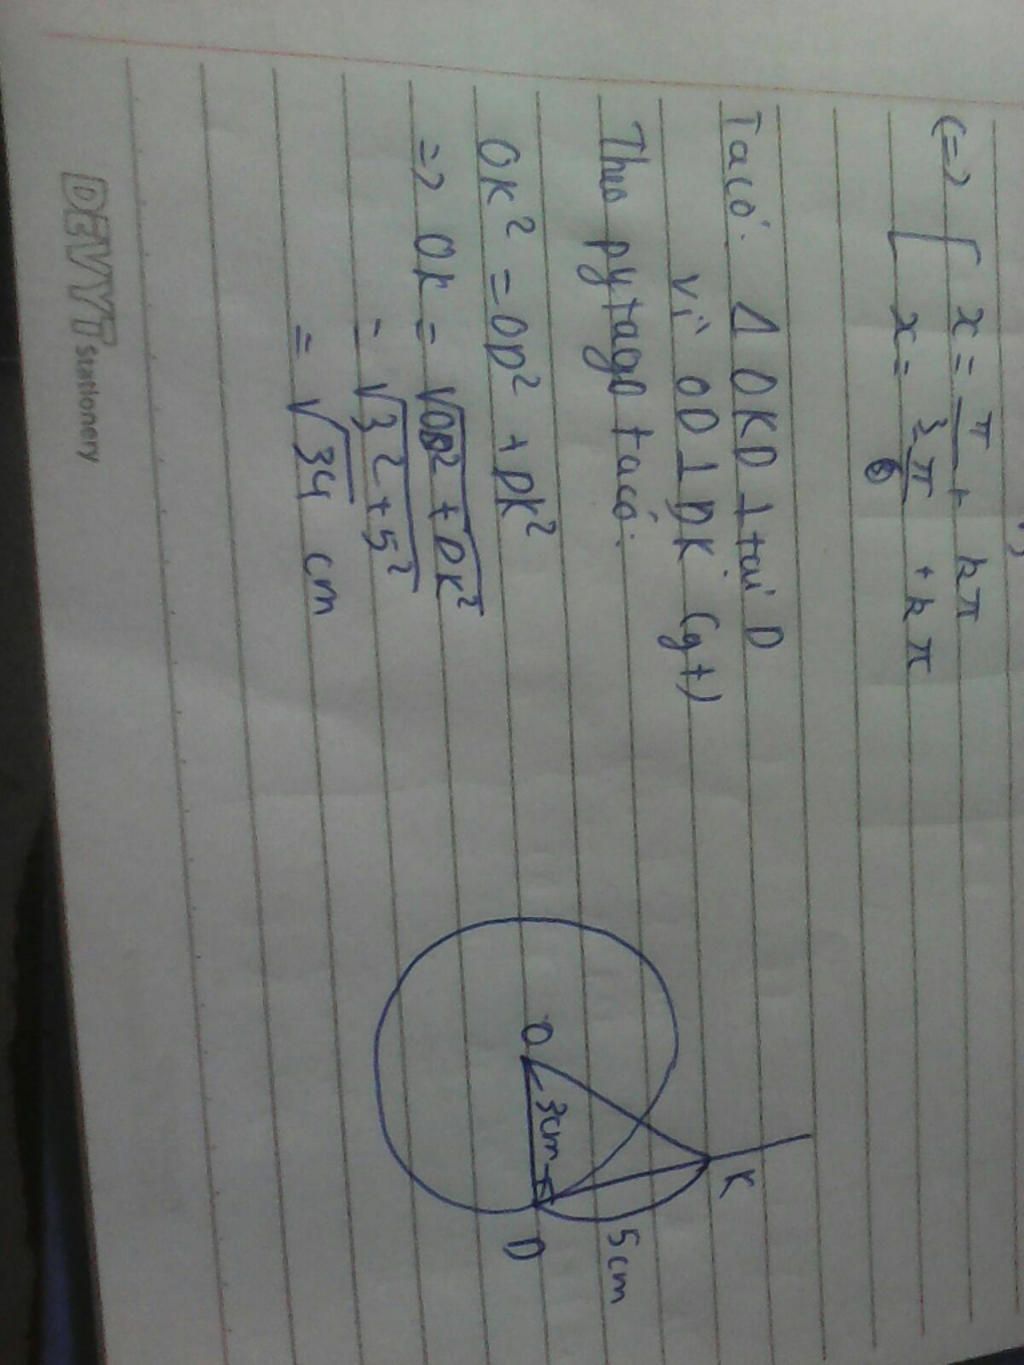 (=> [ x = π/ + kπ
x = 3π/6 + kπ
Ta có: Δ OKD ⊥ tại D
vì OD ⊥ DK (gt)
Theo pytago ta có:
OK² = OD² + DK²
=> OK = √OD² + DK²
= √3² + 5²
= √34 cm
O
3cm
D
5cm
K
DEVYT stationery